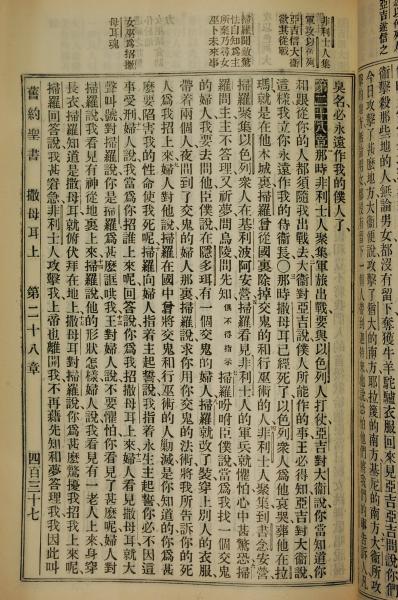 亞吉遂信之
衞擊殺那些地的人無論男女都沒有留下奪獲牛羊駝驢衣服回來見亞吉亞吉問說你們
今日攻擊了甚麼地方大衞便說攻擊了猶大的南方耶拉篾的南方基尼的南方大衞所攻
非利士人集
軍攻以色列
亞吉信大衞
欲其從戰
臭名必永遠作我的僕人了
第二十八章那時非利士人聚集軍旅出戰要與以色列人打仗亞吉對大衞說你當知道你
和跟從你的人都須隨我出戰去大衞對亞吉說僕人所能作的事王必得知亞吉對大衞說
這樣我立你永遠作我的侍衞長〇那時撒母耳已經死了以色列衆人爲他哀哭葬他在拉
瑪就是在他本城裏掃羅曾從國裏除掉交鬼的和行巫術的人非利士人聚集到書念安營
掃羅聚集以色列衆人在基利波阿安營掃羅看見非利士人的軍兵就懼怕心中甚驚恐掃
羅問主主不答理又祈夢問烏陵問先知俱不得指示掃羅吩咐臣僕說當爲我找一個交鬼
的婦人我要去問他臣僕說在隱多珥有一個交鬼的婦人掃羅就改了裝穿上別人的衣服
帶着兩個人夜間到了交鬼的婦人那裏掃羅說求你用你交鬼的法術將我所告訴你的死
人爲我招上來婦人對他說掃羅在國中曾將交鬼和行巫術的人剿滅是你知道的你爲甚
麼要陷害我的性命使我死呢掃羅向婦人指着主起誓說我指着永生主起誓你必不因這
事受刑婦人說我當爲你招誰上來呢回答說你爲我招撒母耳上來婦人看見撒母耳就大
聲叫號對掃羅說你是掃羅爲甚麼誆哄我王對婦人說不要懼怕你看見了甚麼呢婦人對
掃羅說我看見有神從地裏上來掃羅說他的形狀怎樣婦人說我看見有一老人上來身穿
長衣掃羅知道是撒母耳就俯伏拜在地上撒母耳對掃羅說你爲甚麼驚擾我招我上來呢
掃羅回答說我甚窘急非利士人攻擊我上帝也離開我不再藉先知和夢答理我我因此叫
所棄乃尋
巫卜未來事
女巫爲招撒
母耳魂
舊約聖書 撒母耳上 第二十八章 四百三十七